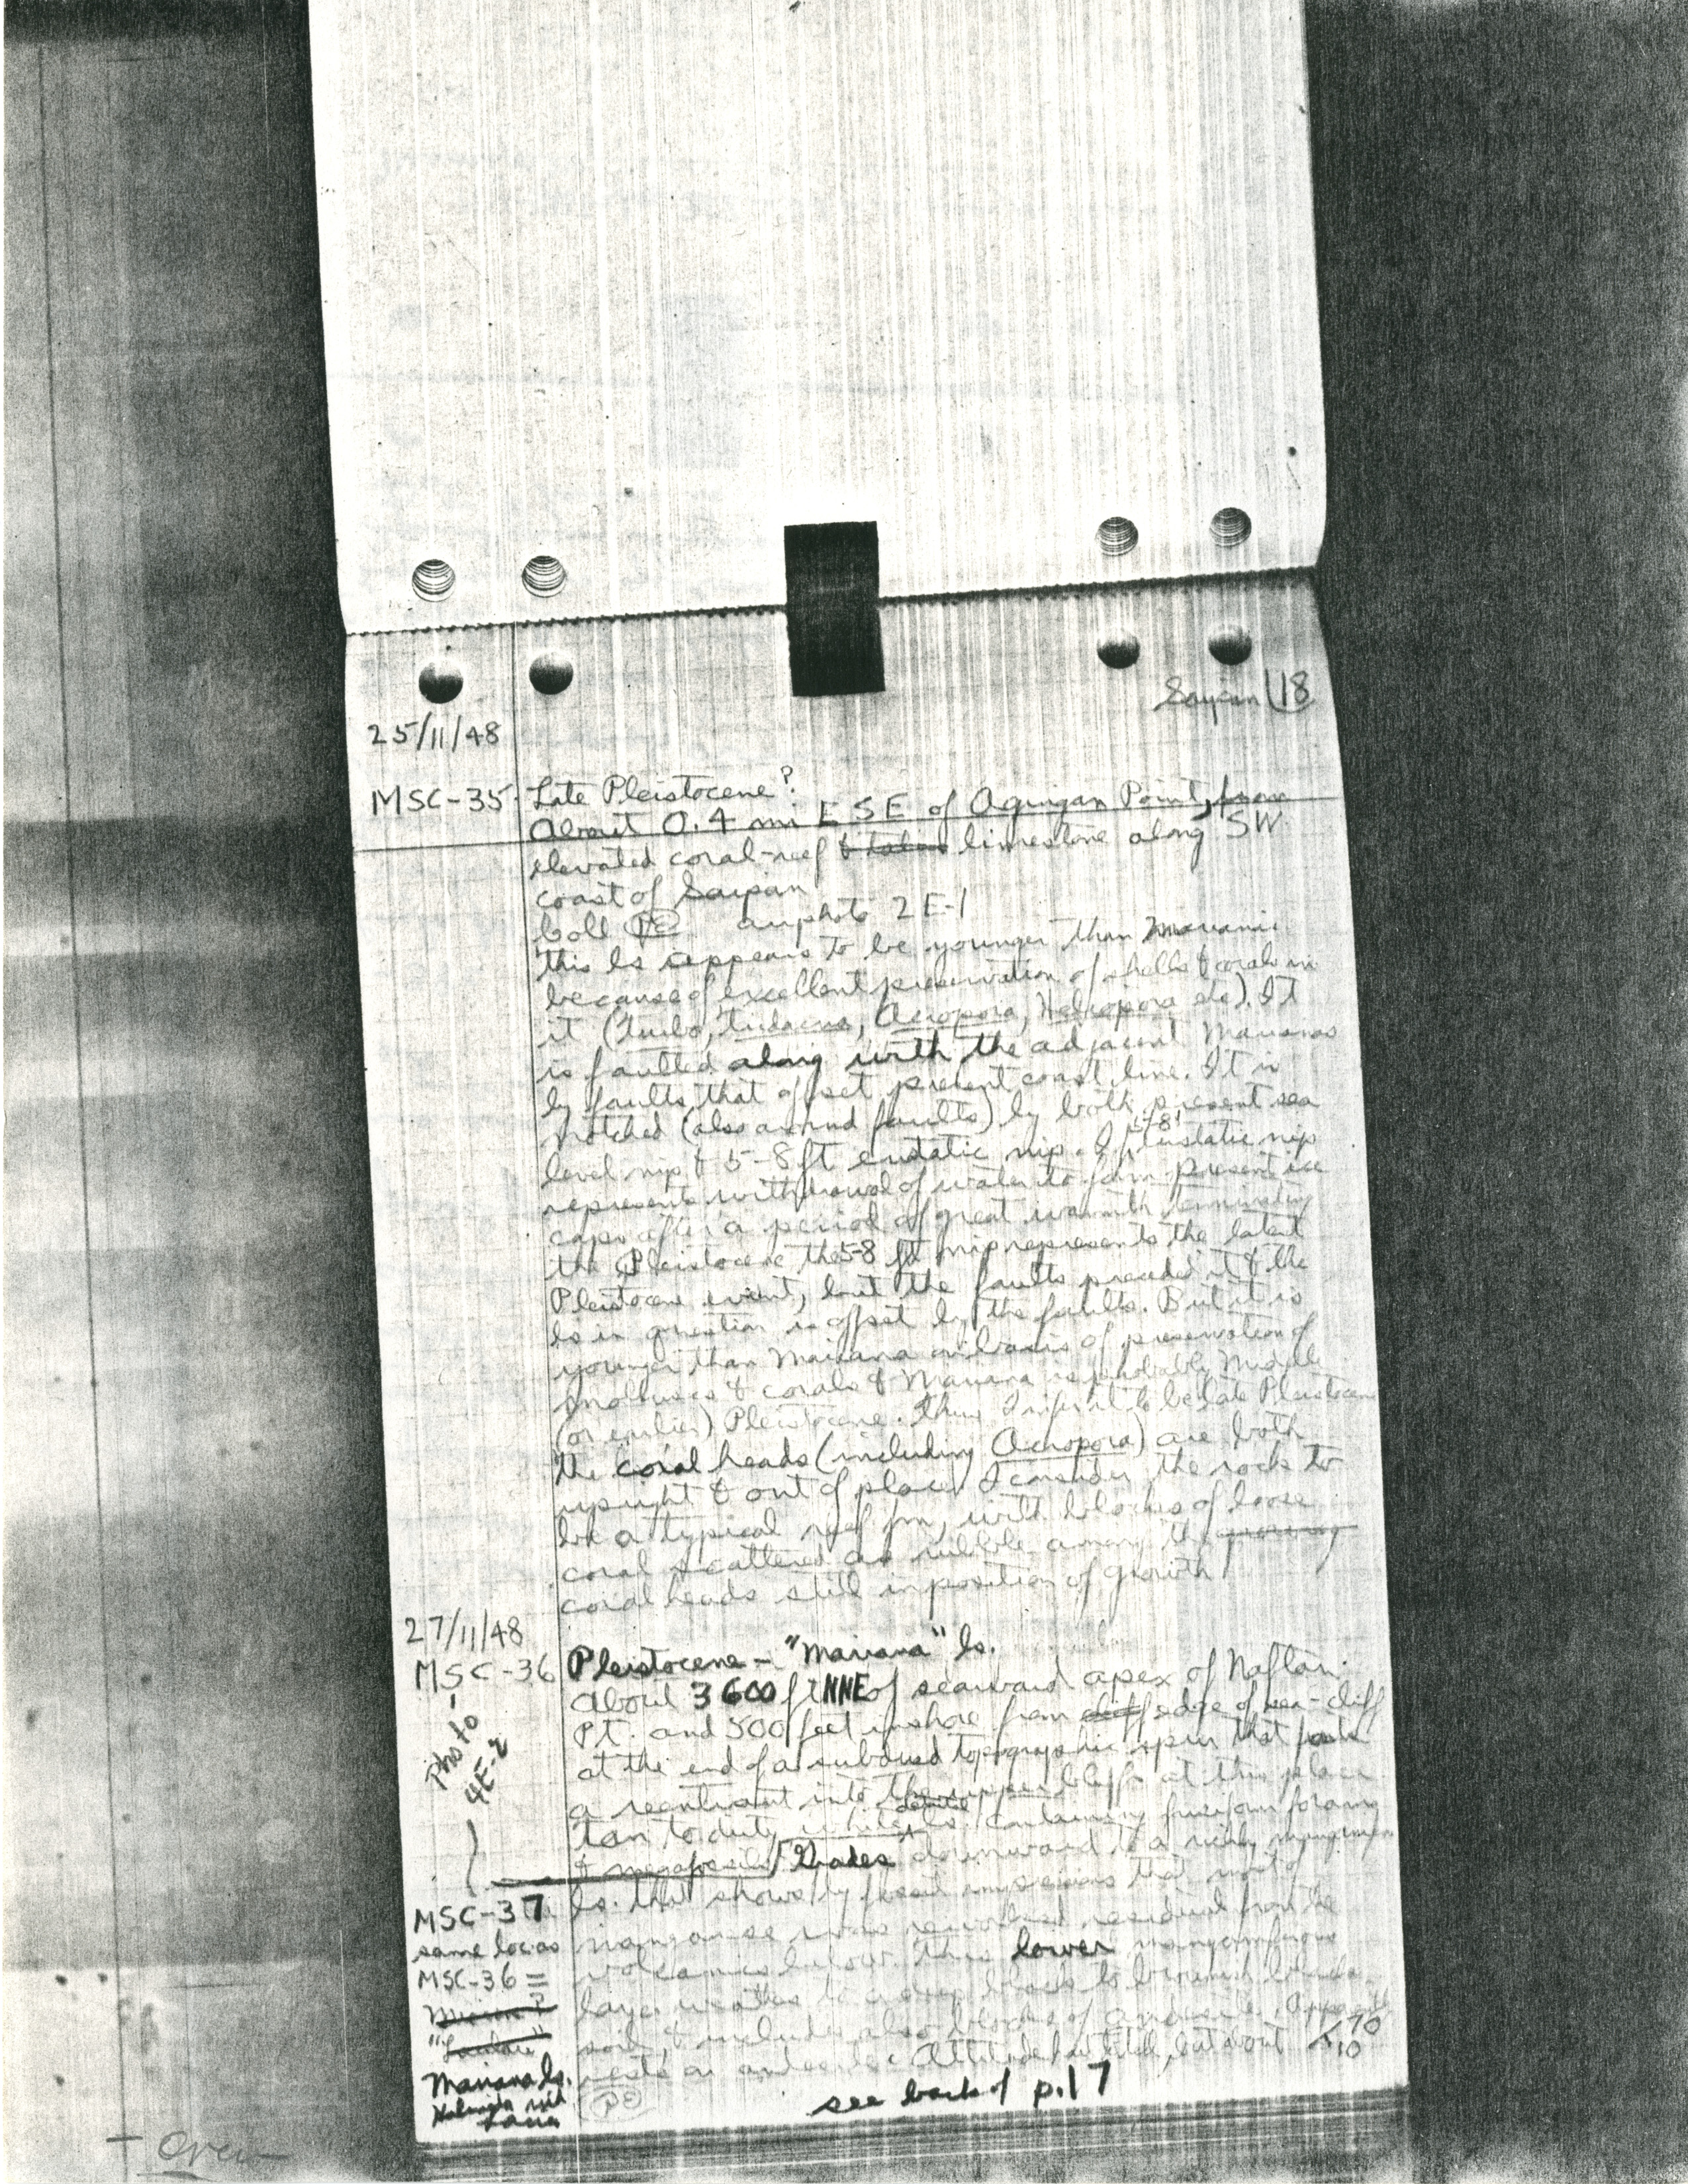 Saipan 18
25/11/48
MSC-35 Late Pleistocene?
About 0.4 mi ESE of Agingan Point, from
elevated coral-reef limestone along SW
coast of Saipan
Coll PC airphoto 2E-1
this ls appears to be younger than Mariana
because of excellent preservation of shells & corals in
it (Turbo, Tridacna, Acropora, Heliopora etc). It
is faulted along with the adjacent Mariana
by faults that offset present coast line. It is
notched (also around faults) by both present sea
level nip & 5-8 ft eustatic nip. If 5-8' eustatic nip
represents withdrawal of water to form present ice
caps after a period of great warmth terminating
the Pleistocene the 5-8 ft nip represents the latest
Pleistocene event, but the faults preceded it & the
ls in question is offset by the faults. But it is
younger than Mariana on basis of preservation of
molluscs & corals & Mariana is probably Middle
(or earlier) Pleistocene. Thus I infer it to be late Pleistocene
The coral heads (including Acropora) are both
upright & out of place. I consider the rocks to
be a typical reef fm, with blocks of loose
coral scattered as rubble among the growing
coral heads still in position of growth
27/11/48
MSC-36 Pleistocene - "Mariana" ls.
About 3600 ft NNE of seaward apex of Naftan
Pt. and 500 feet inshore from cliff edge of sea-cliff
at the end of a subdued topographic spur that
a reentrant into the upper bluff at this place
tan to dirty white detrital ls. containing fusiform forams
& megafossils Grades downward to a richly
ls. that shows by fossil impressions that most of
manganese was reworked residual from the
volcanics below. This lower manganiferous
layer weathers to a deep black to brownish black
soil, & includes also blocks of andesite. Apparently
rests on andesite. Attitude but about 70
10
PC
see back of p. 17
Photo
4E-2
MSC-37
same loc as
MSC-36 =
Mariana ls.
Halimeda rich
+ over